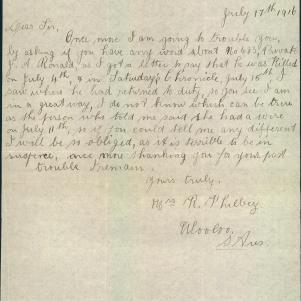 July 17th 1916
Dear Sir,
Once more I am going to trouble you,
by asking if you have any word about No 683, Private
J. A. Ronald as I got a letter to say that he was killed
on July 4th, & in Saturday's Chronicle, July 15th I
saw where he had returned to duty, so you see I am
in a great way, I do not know which can be true
as the person who told me said she had a wire
on July 11th, so if you could tell me any different
I will be so obliged, as it is terrible to be in
suspence, once more thanking you for your past
trouble I remain.
Yours truly,
Mrs R. Philbey
Alooloo
S Aus.